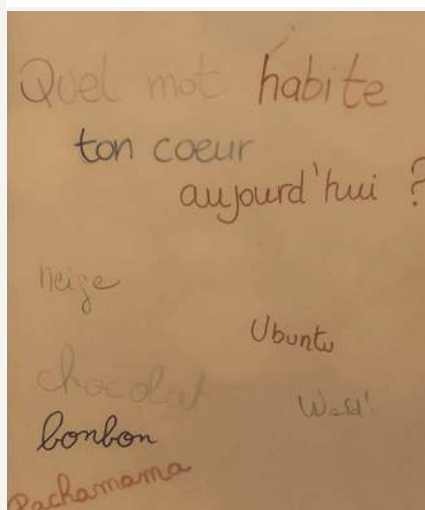 Quel mot habite
ton coeur
aujourd'hui ?
neige
Ubuntu
chocolat
bonbon
Pachamama